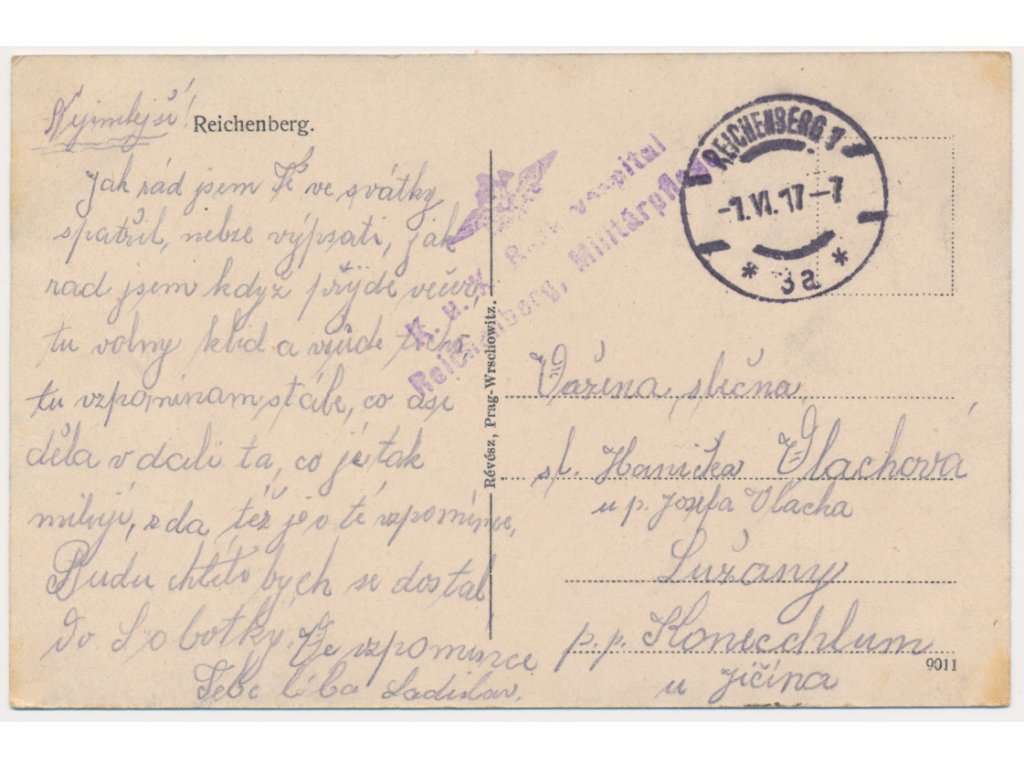 Nejmilejší!
Reichenberg.
Jak rád jsem Tě ve svátky
spatřil, nelze výpsati, jak
rad jsem když příjde večer,
tu volny klid a všude ticho,
tu vzpominam stále, co asi
děla v dali ta, co jé tak
miluji, zda též je o té vzpomince,
Budu chtíti bych se dostal
do Sobotky. Ve vzpomince
Tebe líba Ladislav.
K. u. K. Reservespital
Reichenberg, Militärpflege
REICHENBERG 1
-1.VI.17-7
* 3a *
Révész, Prag-Wrschowitz.
Važena slečna
sl. Hanička Vlachová
u p. Josefa Vlacha
Lužany
p. p. Konecchlum
u Jičína
9011